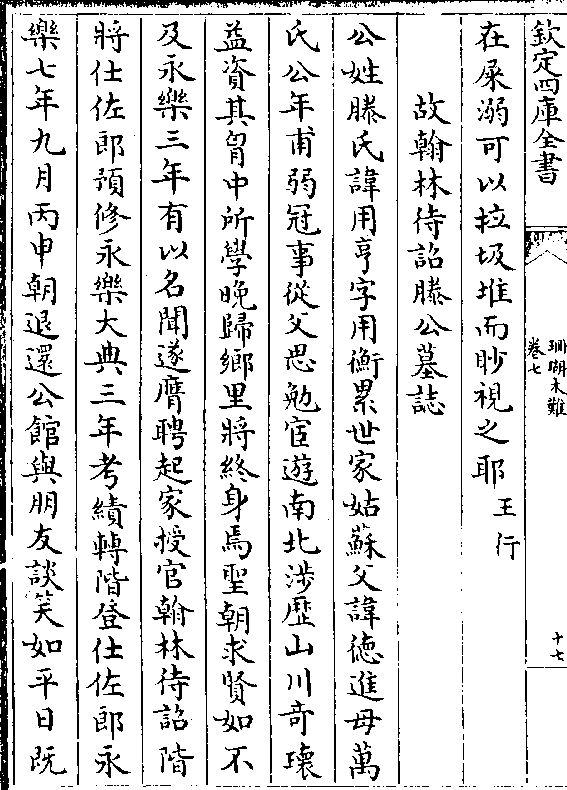 欽定四庫全書
珊瑚木難
卷七
十七
在屎溺可以拉圾堆而眇視之耶王行
故翰林待詔滕公墓誌
公姓滕氏諱用亨字用衡累世家姑蘇父諱德進母萬
氏公年甫弱冠事從父思勉宦遊南北渉歴山川奇瓌
益資其胷中所學晚歸鄉里將終身焉聖朝求賢如不
及永樂三年有以名聞遂膺聘起家授官翰林待詔階
將仕佐郎預修永樂大典三年考績轉階登仕佐郎永
樂七年九月丙申朝退還公館與朋友談笑如平日既